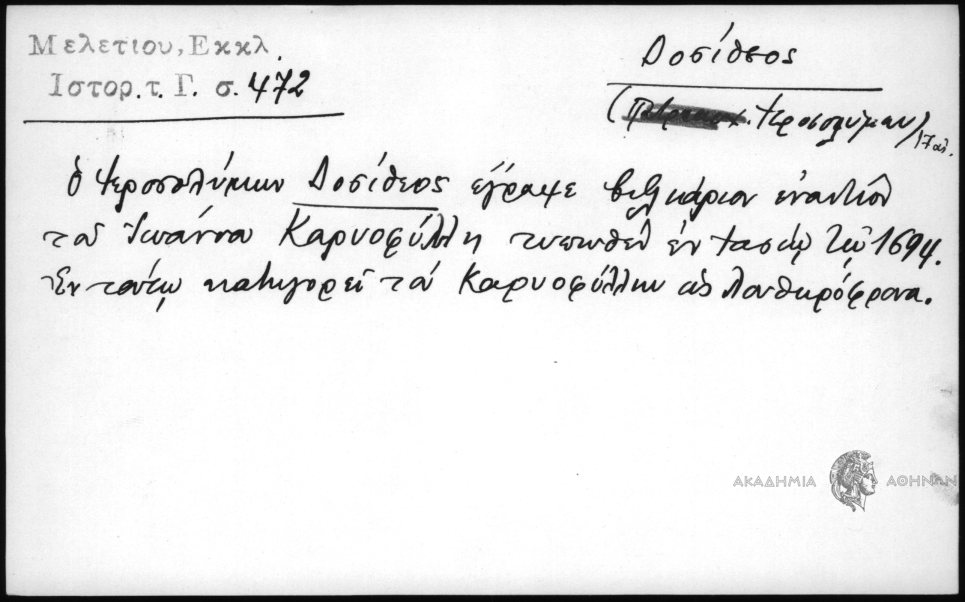 Μελετίου, Εκκλ.
Ιστορ. τ. Γ. σ. 472
Δοσίθεος
(Ιεροσολύμων) 17 αι.
ὁ Ἱεροσολύμων Δοσίθεος ἔγραψε βιβλιάριον ἐναντίον
τοῦ Ἰωάννου Καρυοφύλλη τυπωθὲν ἐν Ἰασίῳ τῷ 1694.
Ἐν τούτῳ κατηγορεῖ τὸν Καρυοφύλλην ὡς Λουθηρόφρονα.
ΑΚΑΔΗΜΙΑ ΑΘΗΝΩΝ